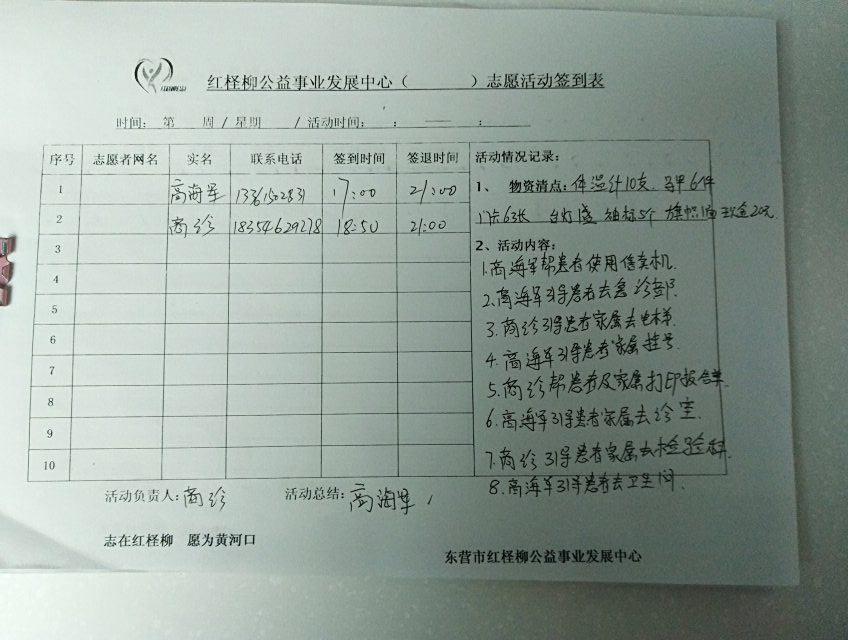 红柽柳公益事业发展中心（ ）志愿活动签到表
时间： 第 周 / 星期 / 活动时间： ： —— ：
序号 志愿者网名 实名 联系电话 签到时间 签退时间
1 高海军 17:00 21:00
2 商珍 18354629278 18:50 21:00
3
4
5
6
7
8
9
10
活动情况记录：
1、 物资清点：体温计10支. 马甲6件
63张 台灯 袖标5个 旗帜 现金20元
2、活动内容：
1.高海军帮患者使用售卖机.
2.高海军引导患者去急诊部.
3.商珍引导患者家属去电梯.
4.高海军引导患者家属挂号.
5.商珍帮患者及家属打印报告单.
6.高海军引导患者家属去诊室.
7.商珍引导患者家属去检验科.
8.高海军引导患者去卫生间.
活动负责人：商珍 活动总结：高海军
志在红柽柳 愿为黄河口
东营市红柽柳公益事业发展中心